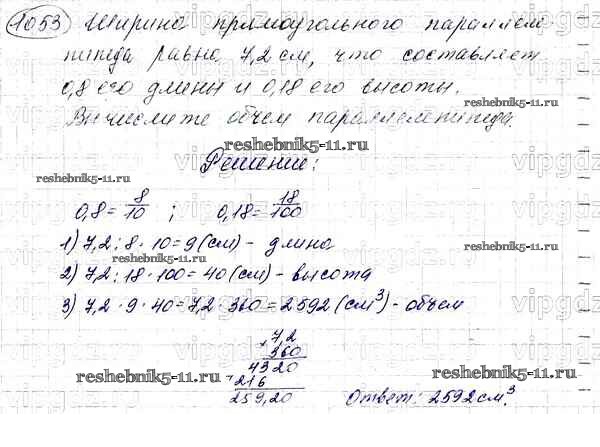 1053 Ширина прямоугольного параллеле-
пипеда равна 7,2 см, что составляет
0,8 его длины и 0,18 его высоты.
reshebnik5-11.ru
Вычислите объем параллелепипеда.
reshebnik5-11.ru
vipgdz
Решение:
reshebnik5-11.ru
0,8 = 8/10 ; 0,18 = 18/100
1) 7,2 : 8 · 10 = 9 (см) - длина
reshebnik5-11.ru
2) 7,2 : 18 · 100 = 40 (см) - высота
3) 7,2 · 9 · 40 = 7,2 · 360 = 2592 (см³) - объем
× 7,2
360
4320
reshebnik5-11.ru
+ 216
reshebnik5-11.ru
259,20
Ответ: 2592 см³.